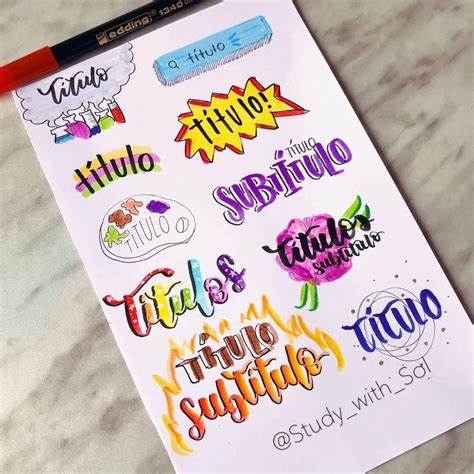 edding 1340
Título
título
título!
título
TÍTULO
SUBTÍTULO
TÍTULO
títulos
subtítulo
títulos
TÍTULO
TÍTULO
subtítulo
@Study_with_Sal